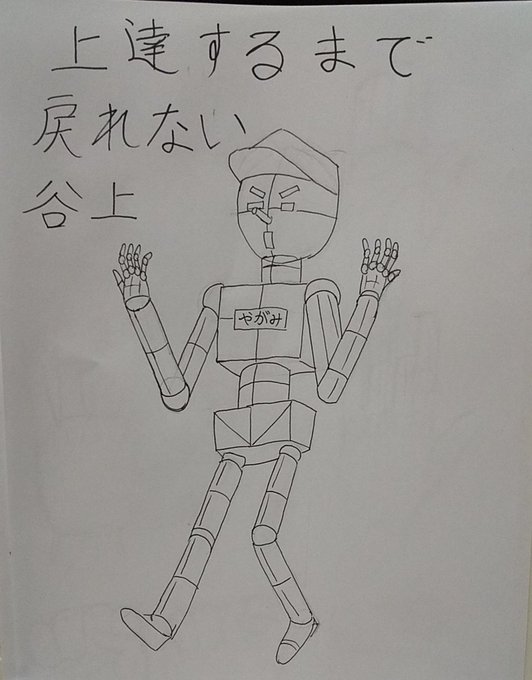 上達するまで
戻れない
谷上
やがみ